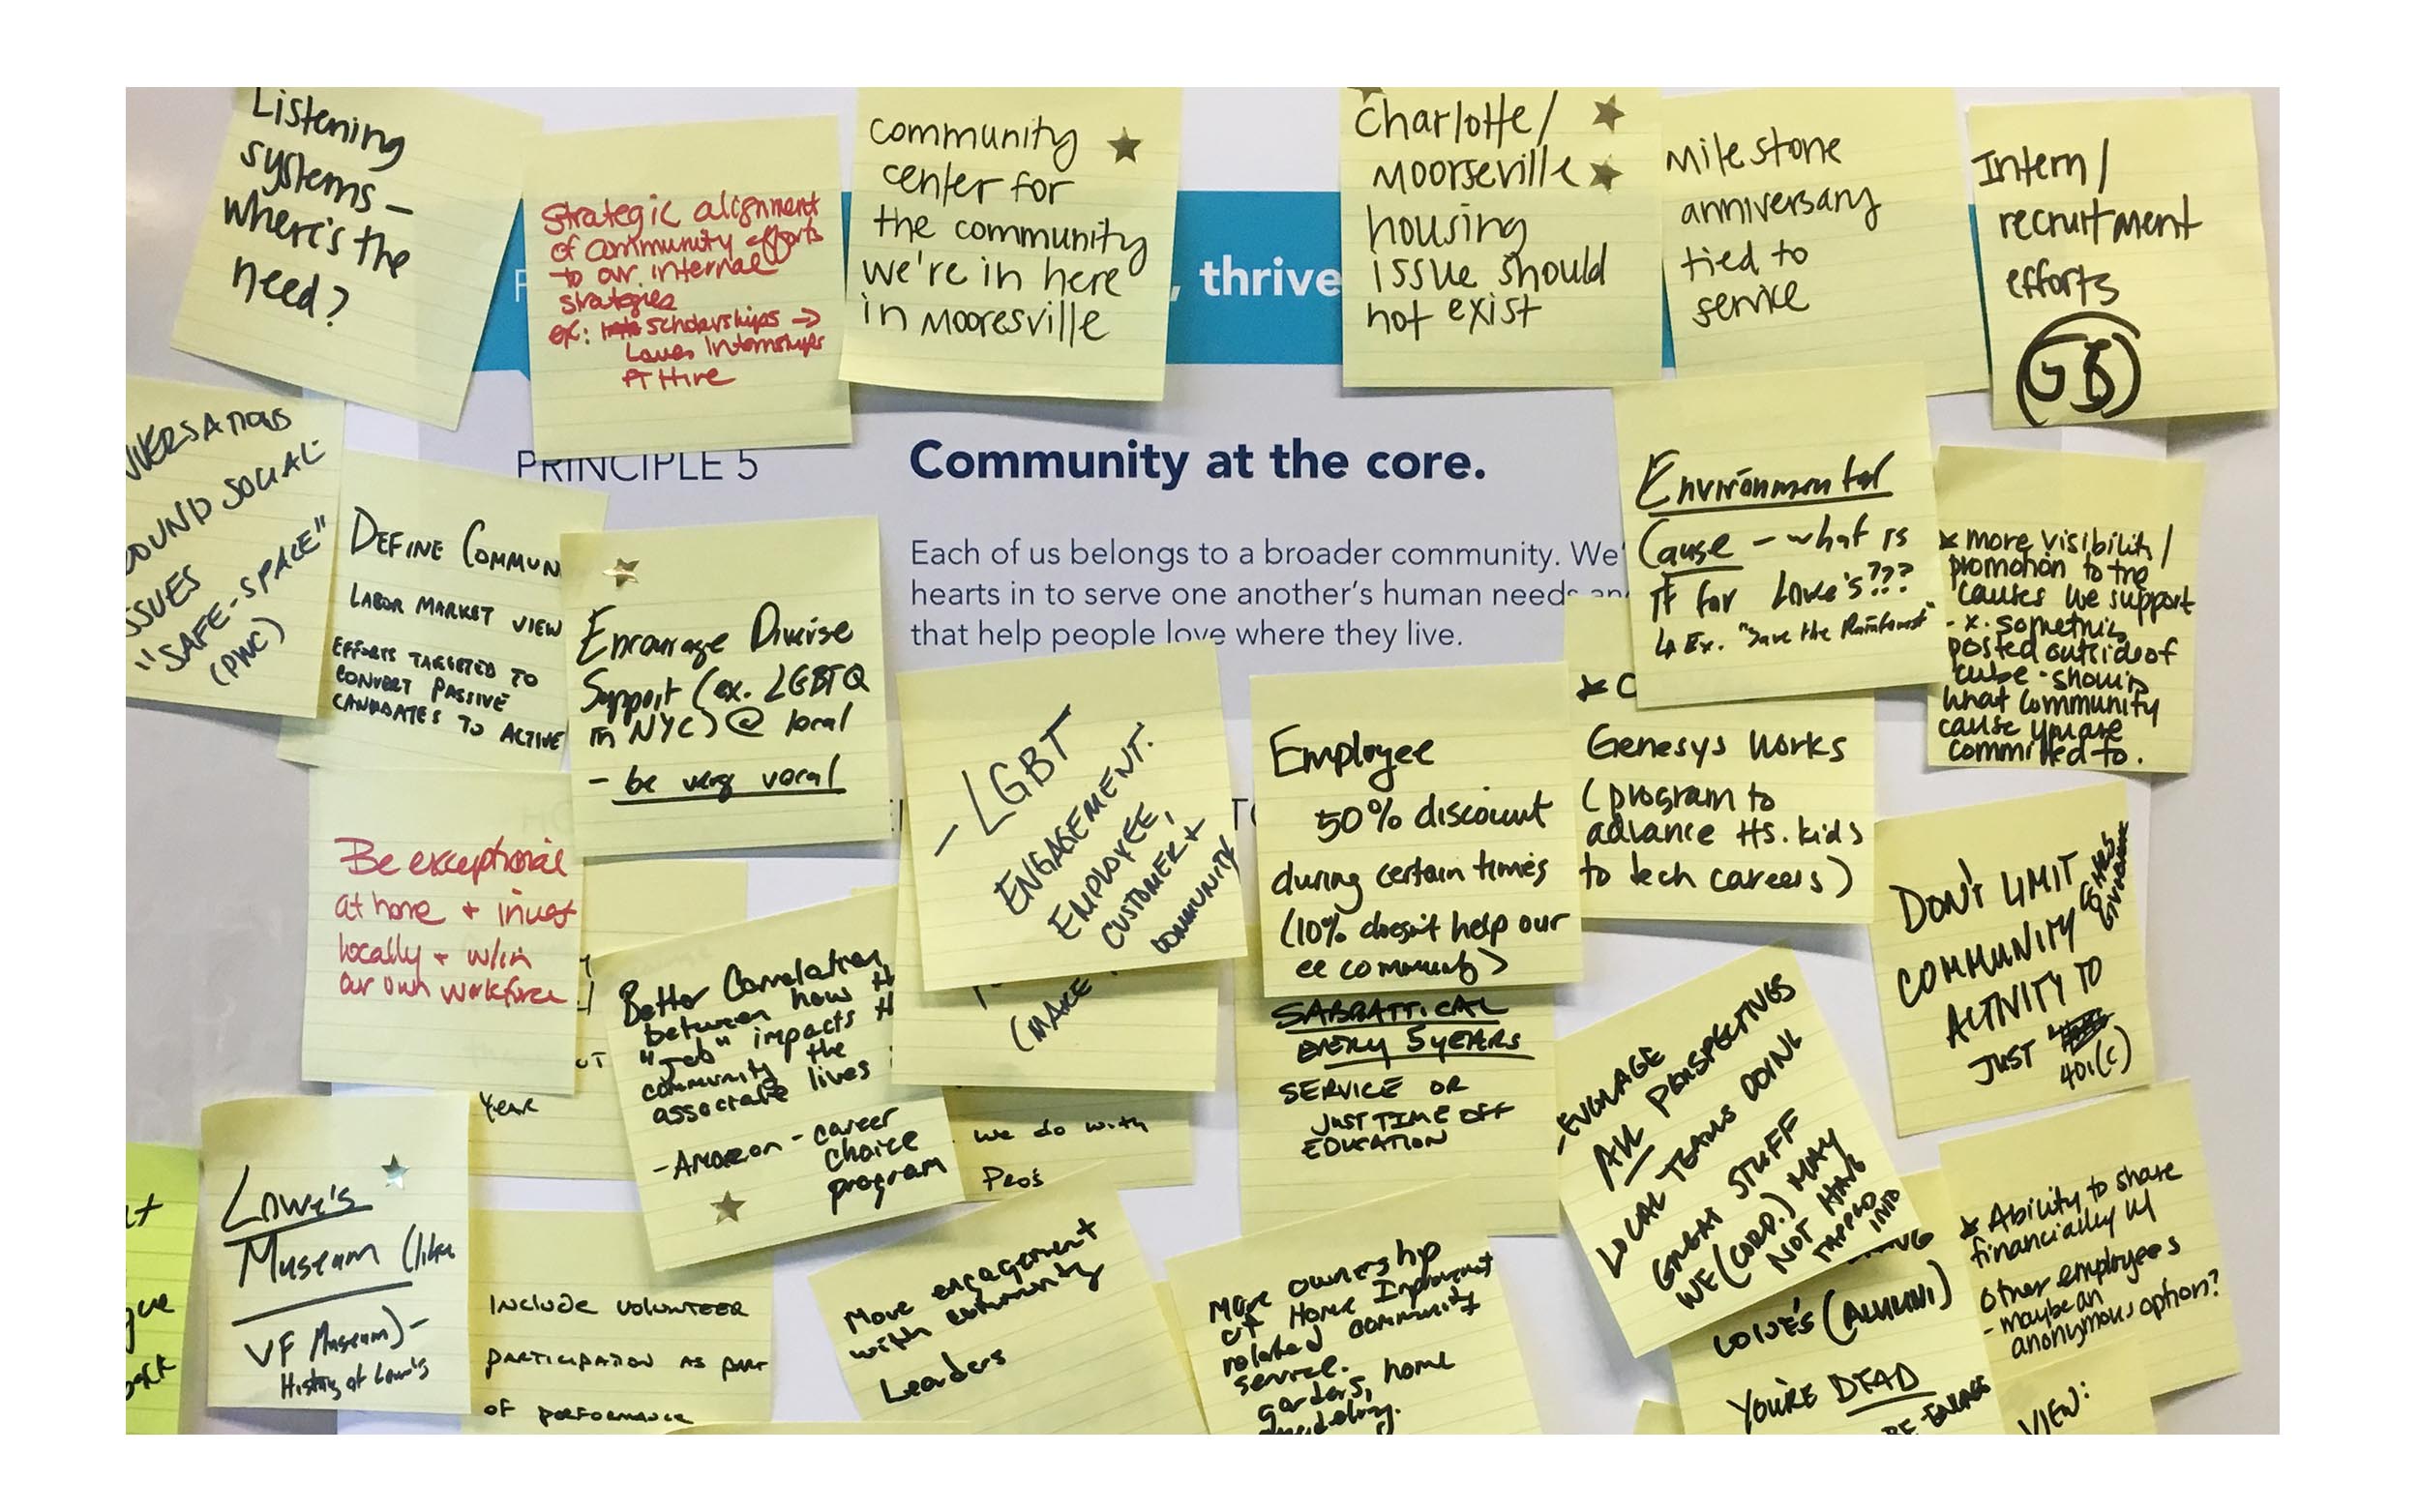 Listening
systems –
where's the
need?
Strategic alignment
of community efforts
to our internal
strategies
ex: scholarships →
Lowes Internships
PT Hire
community
center for
the community
we're in here
in Mooresville
, thrive
Charlotte/
Moorseville
housing
issue should
not exist
Milestone
anniversary
tied to
service
Intern/
recruitment
efforts
GB
PRINCIPLE 5
Community at the core.
Each of us belongs to a broader community. We'
hearts in to serve one another's human needs an
that help people love where they live.
VERSATIONS
OUND SOCIAL
SSUES
"SAFE-SPACE"
(PWC)
DEFINE COMMUN
LABOR MARKET VIEW
EFFORTS TARGETED TO
CONVERT PASSIVE
CANDIDATES TO ACTIVE
Encourage Diverse
Support (ex. LGBTQ
in NYC) @ local
- be very vocal
Environmental
Cause – what is
it for Lowe's???
↳ Ex. "Save the Rainforest"
* more visibility/
promotion to the
causes we support
posted outside of
cube - show's
what community
cause you are
committed to.
- LGBT
ENGAGEMENT.
EMPLOYEE,
CUSTOMER +
COMMUNITY
(MAKE
Employee
50% discount
during certain times
(10% doesn't help our
ee community)
* C
Genesys Works
(program to
advance HS. kids
to tech careers)
DON'T LIMIT
COMMUNITY
ACTIVITY TO
JUST
401(c)
Be exceptional
at home + invest
locally + w/in
our own workforce
UT
Year
Better Correlation
between how th
"job" impacts th
community the
associate lives
- Amazon - career
choice
program
we do with
Pros
SABBATTICAL
EVERY 5 YEARS
SERVICE OR
JUST TIME OFF
EDUCATION
- ENGAGE
ALL PERSPECTIVES
LOCAL TEAMS DOING
GREAT STUFF
WE (CORP.) MAY
NOT HAVE
TAPPED
INTO
* Ability to share
financially w/
other employees
- maybe an
anonymous option?
Lowe's
Museum (like
VF Museum) -
History of Lowe's
INCLUDE VOLUNTEER
PARTICIPATION AS PART
OF PERFORMANCE
More engagement
with community
Leaders
More ownership
of Home Improvment
related community
service.
gardens, home
LOWE'S (ALUMNI)
YOU'RE DEAD
RE-ENGAGE
VIEW: